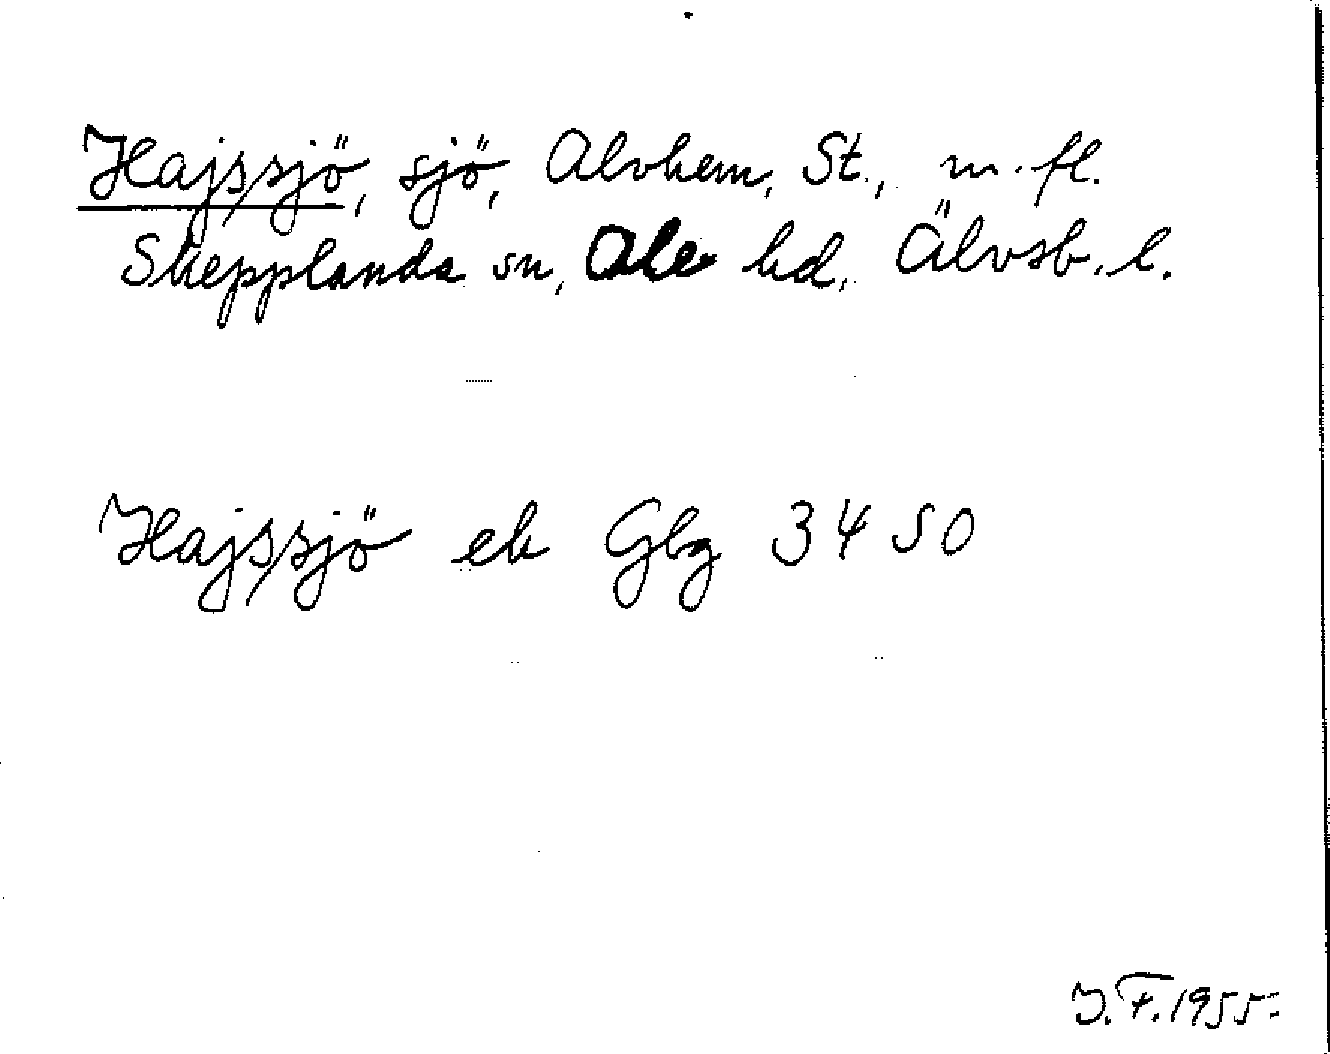 Hajs/sjö, sjö, Alvhem, St., m. fl.
Skepplanda sn, Ale hd, Älvsb. l.
Hajs/sjö ek Gbg 3450
J. F. 1955